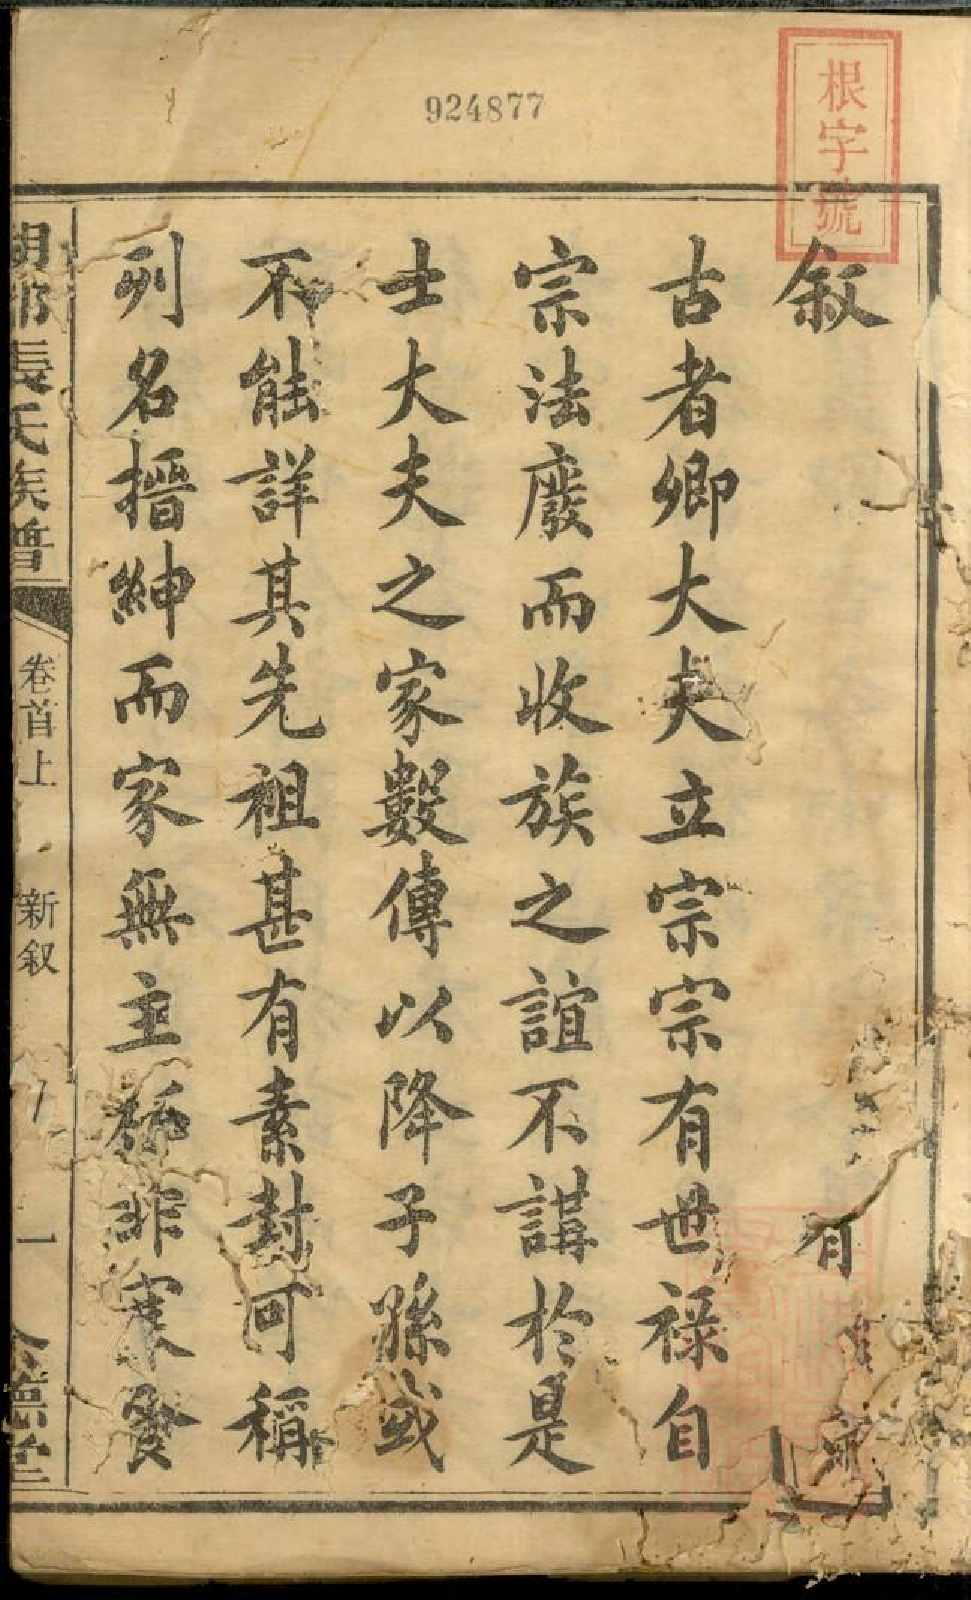 924877
根字號
叙
古者卿大夫立宗宗有世禄自
宗法廢而收族之誼不講於是
士大夫之家數傳以降子孫或
不能詳其先祖甚有素封可稱
列名搢紳而家無主祏非寒食
張氏族譜
卷首上
新叙
一
德堂